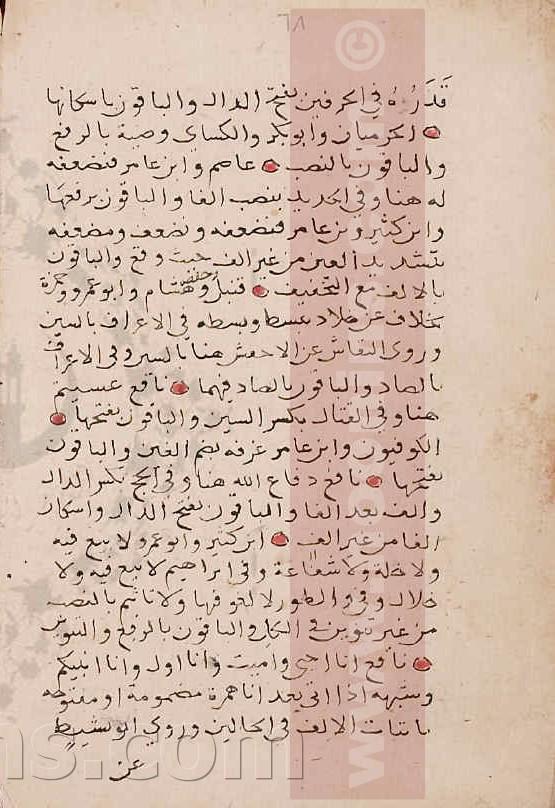 ٦٨
قَدَرُهُ في الحرفين بفتح الدال والباقون باسكانها
الحرميان وابو بكر والكساى وصية بالرفع
والباقون بالنصب عاصم وابن عامر فيضعفه
له هنا وفي الحديد بنصب الفا والباقون برفعها
وابن كثير وبن عامر فيضعفه ويضعف ومضعفه
بتشديد العين من غير الف حيث وقع والباقون
بالالف مع التخفيف قنبل وحفص وهشام وابو عمرو وحمزة
بخلاف عن خلاد يبسط وبسطه في الاعراف بالسين
وروى النقاش عن الاخفش هنا بالسين وفي الاعراف
بالصاد والباقون بالصاد فيهما نافع عسيتم
هنا وفي القتال بكسر السين والباقون بفتحها
الكوفيون وابن عامر غرفه بضم الغين والباقون
بفتحها نافع دفاع الله هنا وفي الحج بكسر الدال
والف بعد الفا والباقون بفتح الدال واسكان
الفا من غير الف ابن كثير وابو عمرو لا بيع فيه
ولا خلة ولا شفاعة وفي ابراهيم لا بيع فيه ولا
خلال وفي والطور لا لغو فيها ولا تاثيم بالنصب
من غير تنوين في الكل والباقون بالرفع والتنوين
نافع انا احى واميت وانا اول وانا انبيكم
وشبهه اذا اتى بعد انا همزة مضمومة او مفتوحه
باثبات الالف في الحالين وروي ابو نشيط
عن
www.
ns.com
©